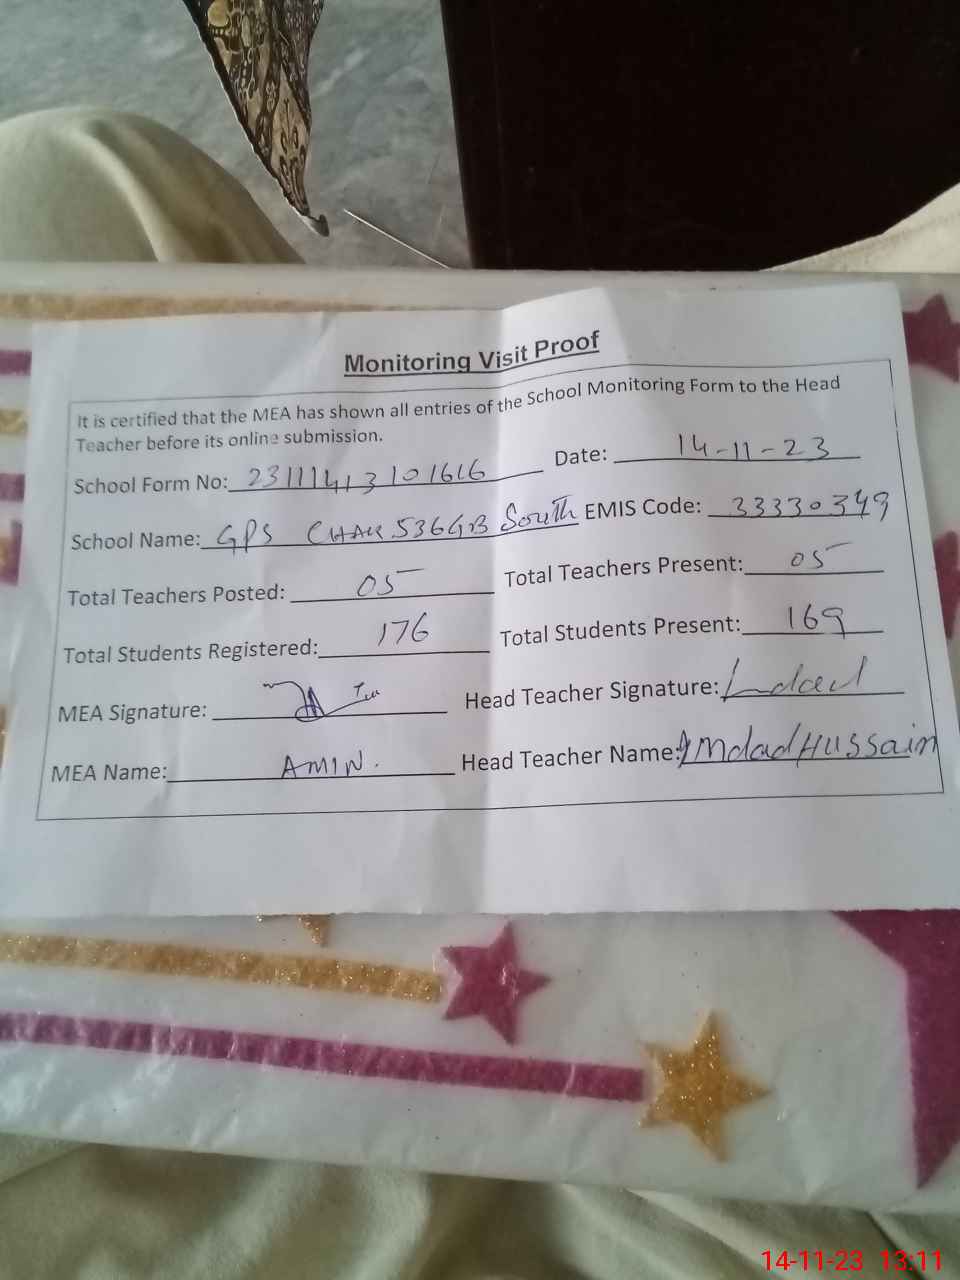 Monitoring Visit Proof
It is certified that the MEA has shown all entries of the School Monitoring Form to the Head
Teacher before its online submission.
School Form No: 23111413101616 Date: 14-11-23
School Name: GPS CHAK 536GB South EMIS Code: 33330349
Total Teachers Posted: 05 Total Teachers Present: 05
Total Students Registered: 176 Total Students Present: 169
MEA Signature: Head Teacher Signature: Imdad
MEA Name: AMIN. Head Teacher Name: Imdad Hussain
14-11-23 13:11